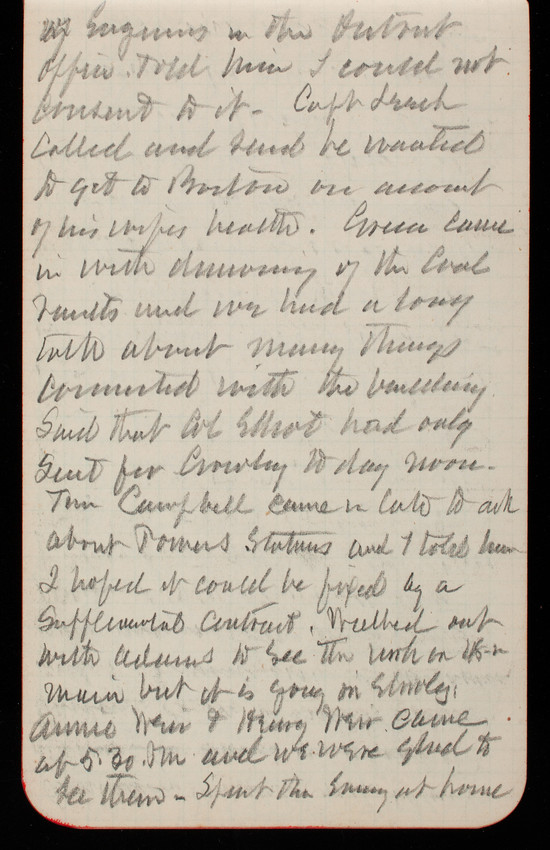 of Engineers in the District
office. Told him I could not
consent to it - Capt
Called and said he wanted
to get to Boston on account
of his wifes health. Green came
in with drawing of the Coal
vaults and we had a long
talk about many things
connected with the building
Said that Col Elliot had only
Sent for Crowley to day noon -
Tom Campbell came in late to ask
about Powers Status and I told him
I hoped it could be fixed by a
Supplemental Contract. Walked out
with Adams to See the work on
main but it is going on Slowly.
Annie Weir & Henry Weir came
at 5 30 Pm and we were glad to
See them - Spent the Evning at home